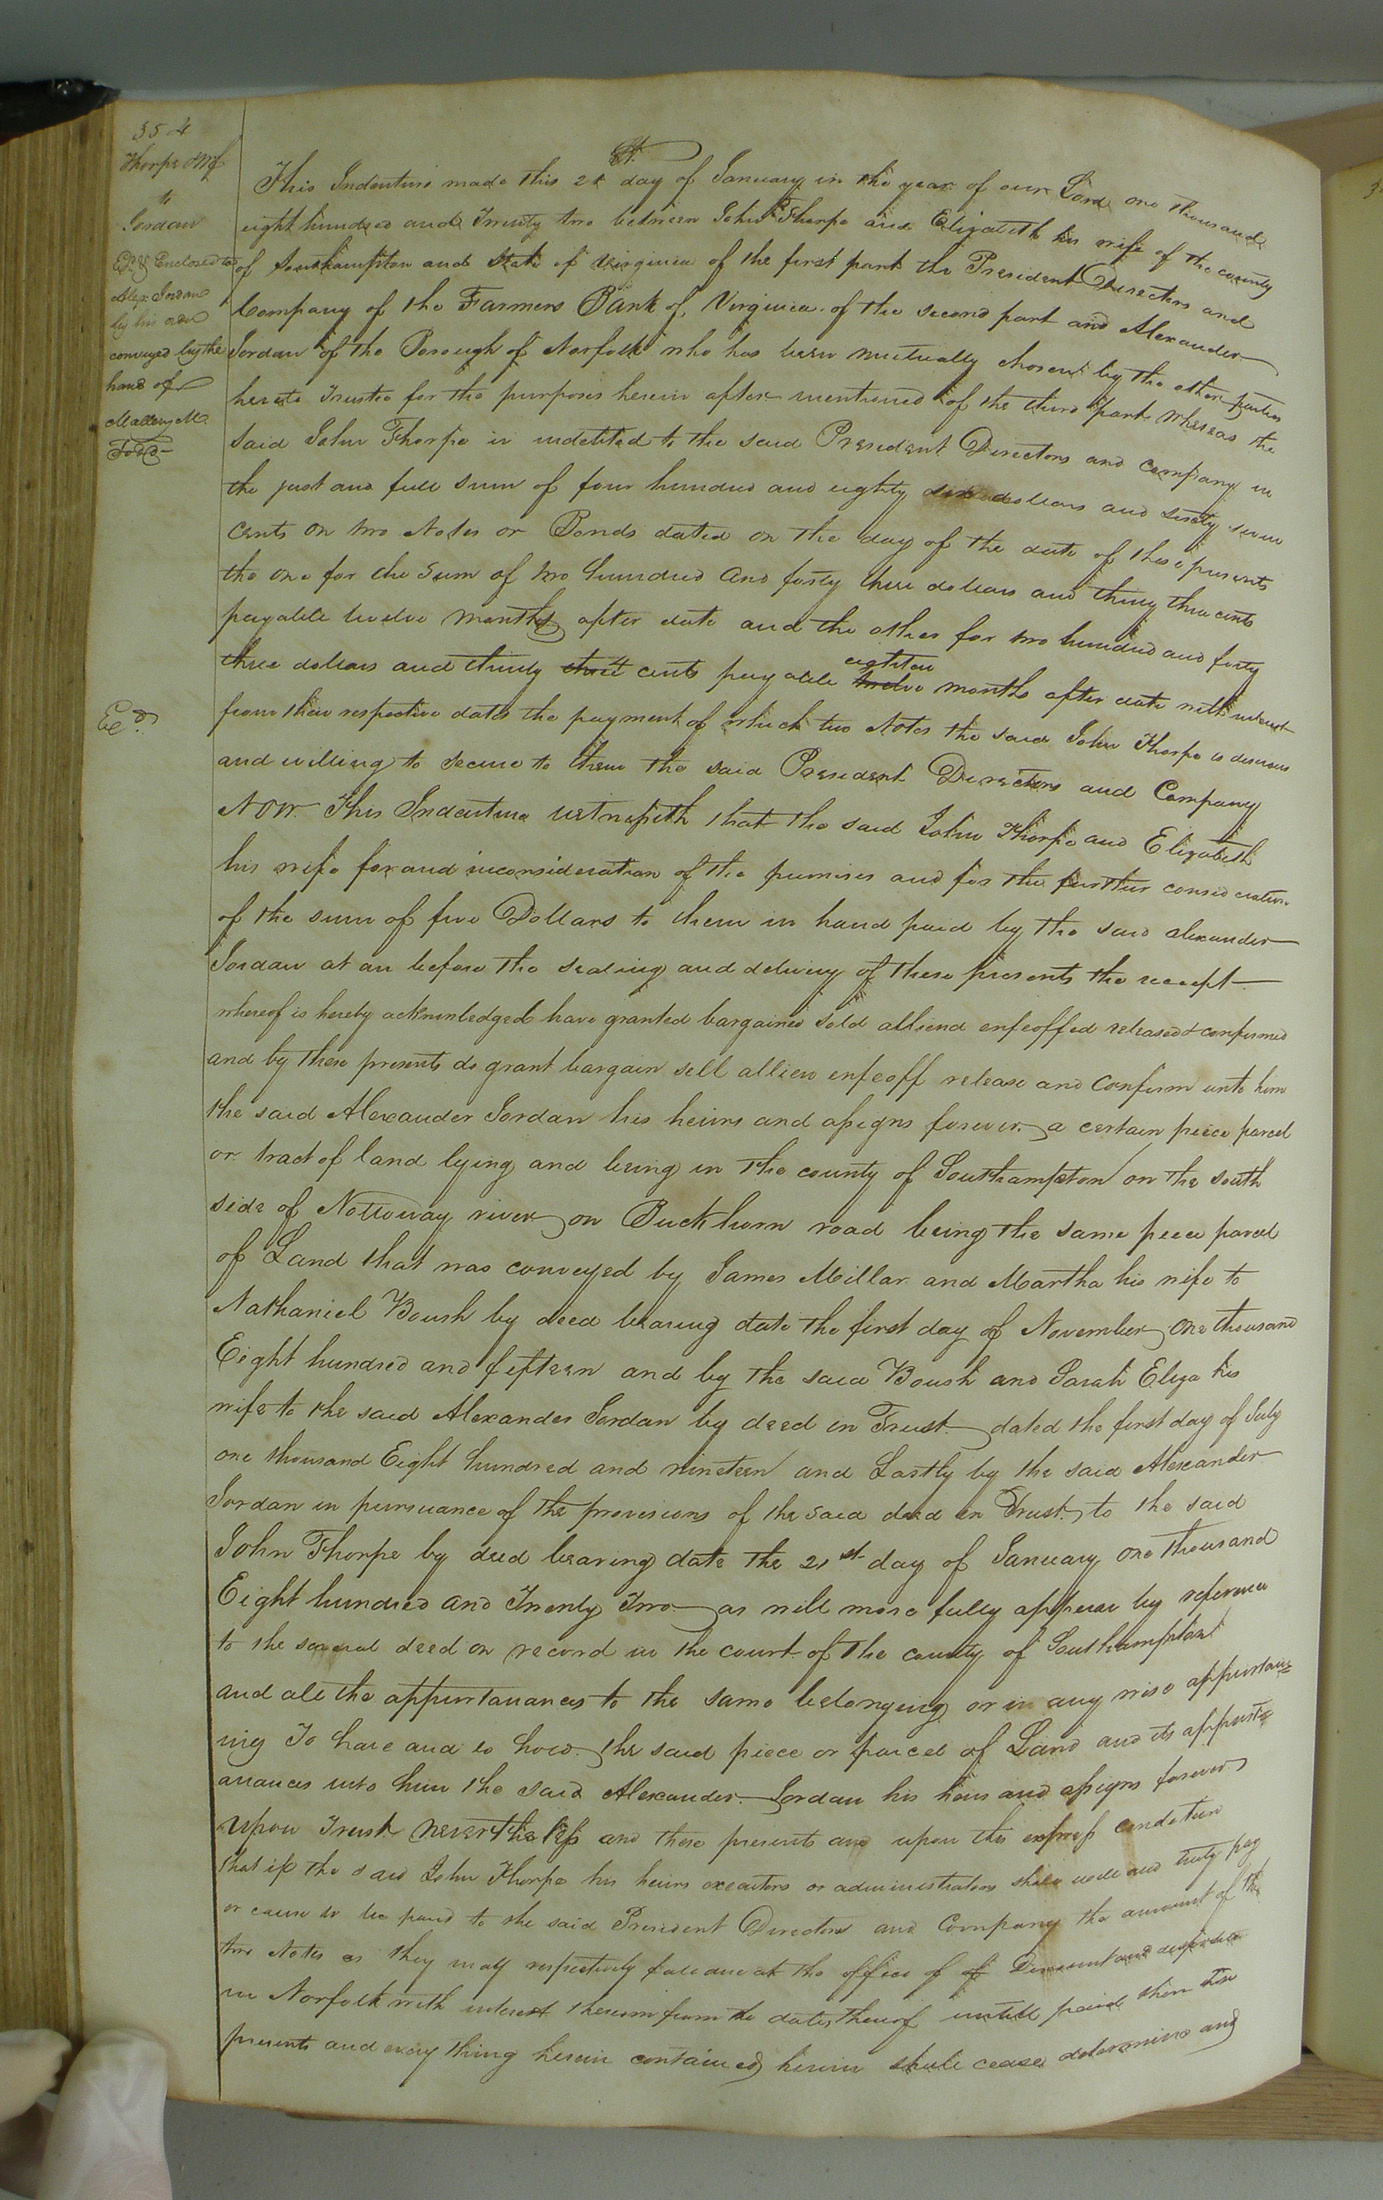 354
Thorpe & Wf
to
Jordan
Ex'd & Enclosed to
Alex. Jordan
by his order
conveyed by the
hand of
Mallory M.
Todd
Ex'd.
This Indenture made this 21st day of January in the year of our Lord one thousand
eight hundred and Twenty two between John Thorpe and Elizabeth his wife of the county
of Southampton and State of Virginia of the first part the President Directors and
Company of the Farmers Bank of Virginia of the second part and Alexander
Jordan of the Borough of Norfolk who has been mutually chosen by the other parties
hereto Trustee for the purposes herein after mentioned of the third part Whereas the
said John Thorpe is indebted to the said President Directors and company in
the just and full sum of four hundred and eighty six dollars and sixty seven
cents on two Notes or Bonds dated on the day of the date of these presents
the one for the sum of two hundred and forty three dollars and thirty three cents
payable twelve months after date and the other for two hundred and forty
three dollars and thirty three cents payable twelve eighteen months after date with interest
from their respective dates the payment of which two Notes the said John Thorpe is desirous
and willing to secure to them the said President Directors and Company
NOW This Indenture witnesseth that the said John Thorpe and Elizabeth
his wife for and in consideration of the premises and for the further consideration
of the sum of five Dollars to them in hand paid by the said alexander
Jordan at an before the sealing and delivery of these presents the receipt
whereof is hereby acknowledged have granted bargained sold alliend enfeoffed released & confirmed
and by these presents do grant bargain sell allien enfeoff release and confirm unto him
the said Alexander Jordan his heirs and assigns forever a certain piece parcel
or tract of land lying and being in the county of Southampton on the south
side of Nottoway river on Buckhorn road being the same piece parcel
of Land that was conveyed by James Millar and Martha his wife to
Nathaniel Boush by deed bearing date the first day of November one thousand
Eight hundred and fifteen and by the said Boush and Sarah Eliza his
wife to the said Alexander Jordan by deed in Trust dated the first day of July
one thousand Eight hundred and nineteen and Lastly by the said Alexander
Jordan in pursuance of the provisions of the said deed in Trust to the said
John Thorpe by deed bearing date the 21st day of January one thousand
Eight hundred and Twenty Two as will more fully appear by reference
to the several deed on record in the court of the county of Southampton
and all the appurtanances to the same belonging or in any wise appurtain=
ing To have and to hold the said piece or parcel of Land and its appurte
anances unto him the said Alexander Jordan his heirs and assigns forever
Upon Trust nevertheless and these presents are upon this express condition
that if the said John Thorpe his heirs executors or administrators shall well and truly pay
or cause to be paid to the said President Directors and Company the amount of the
two Notes as they may respectively fall due at the office of of Discount and deposite
in Norfolk with interest thereon from the dates thereof untill paid then these
presents and every thing herein contained herein shall cease determine and